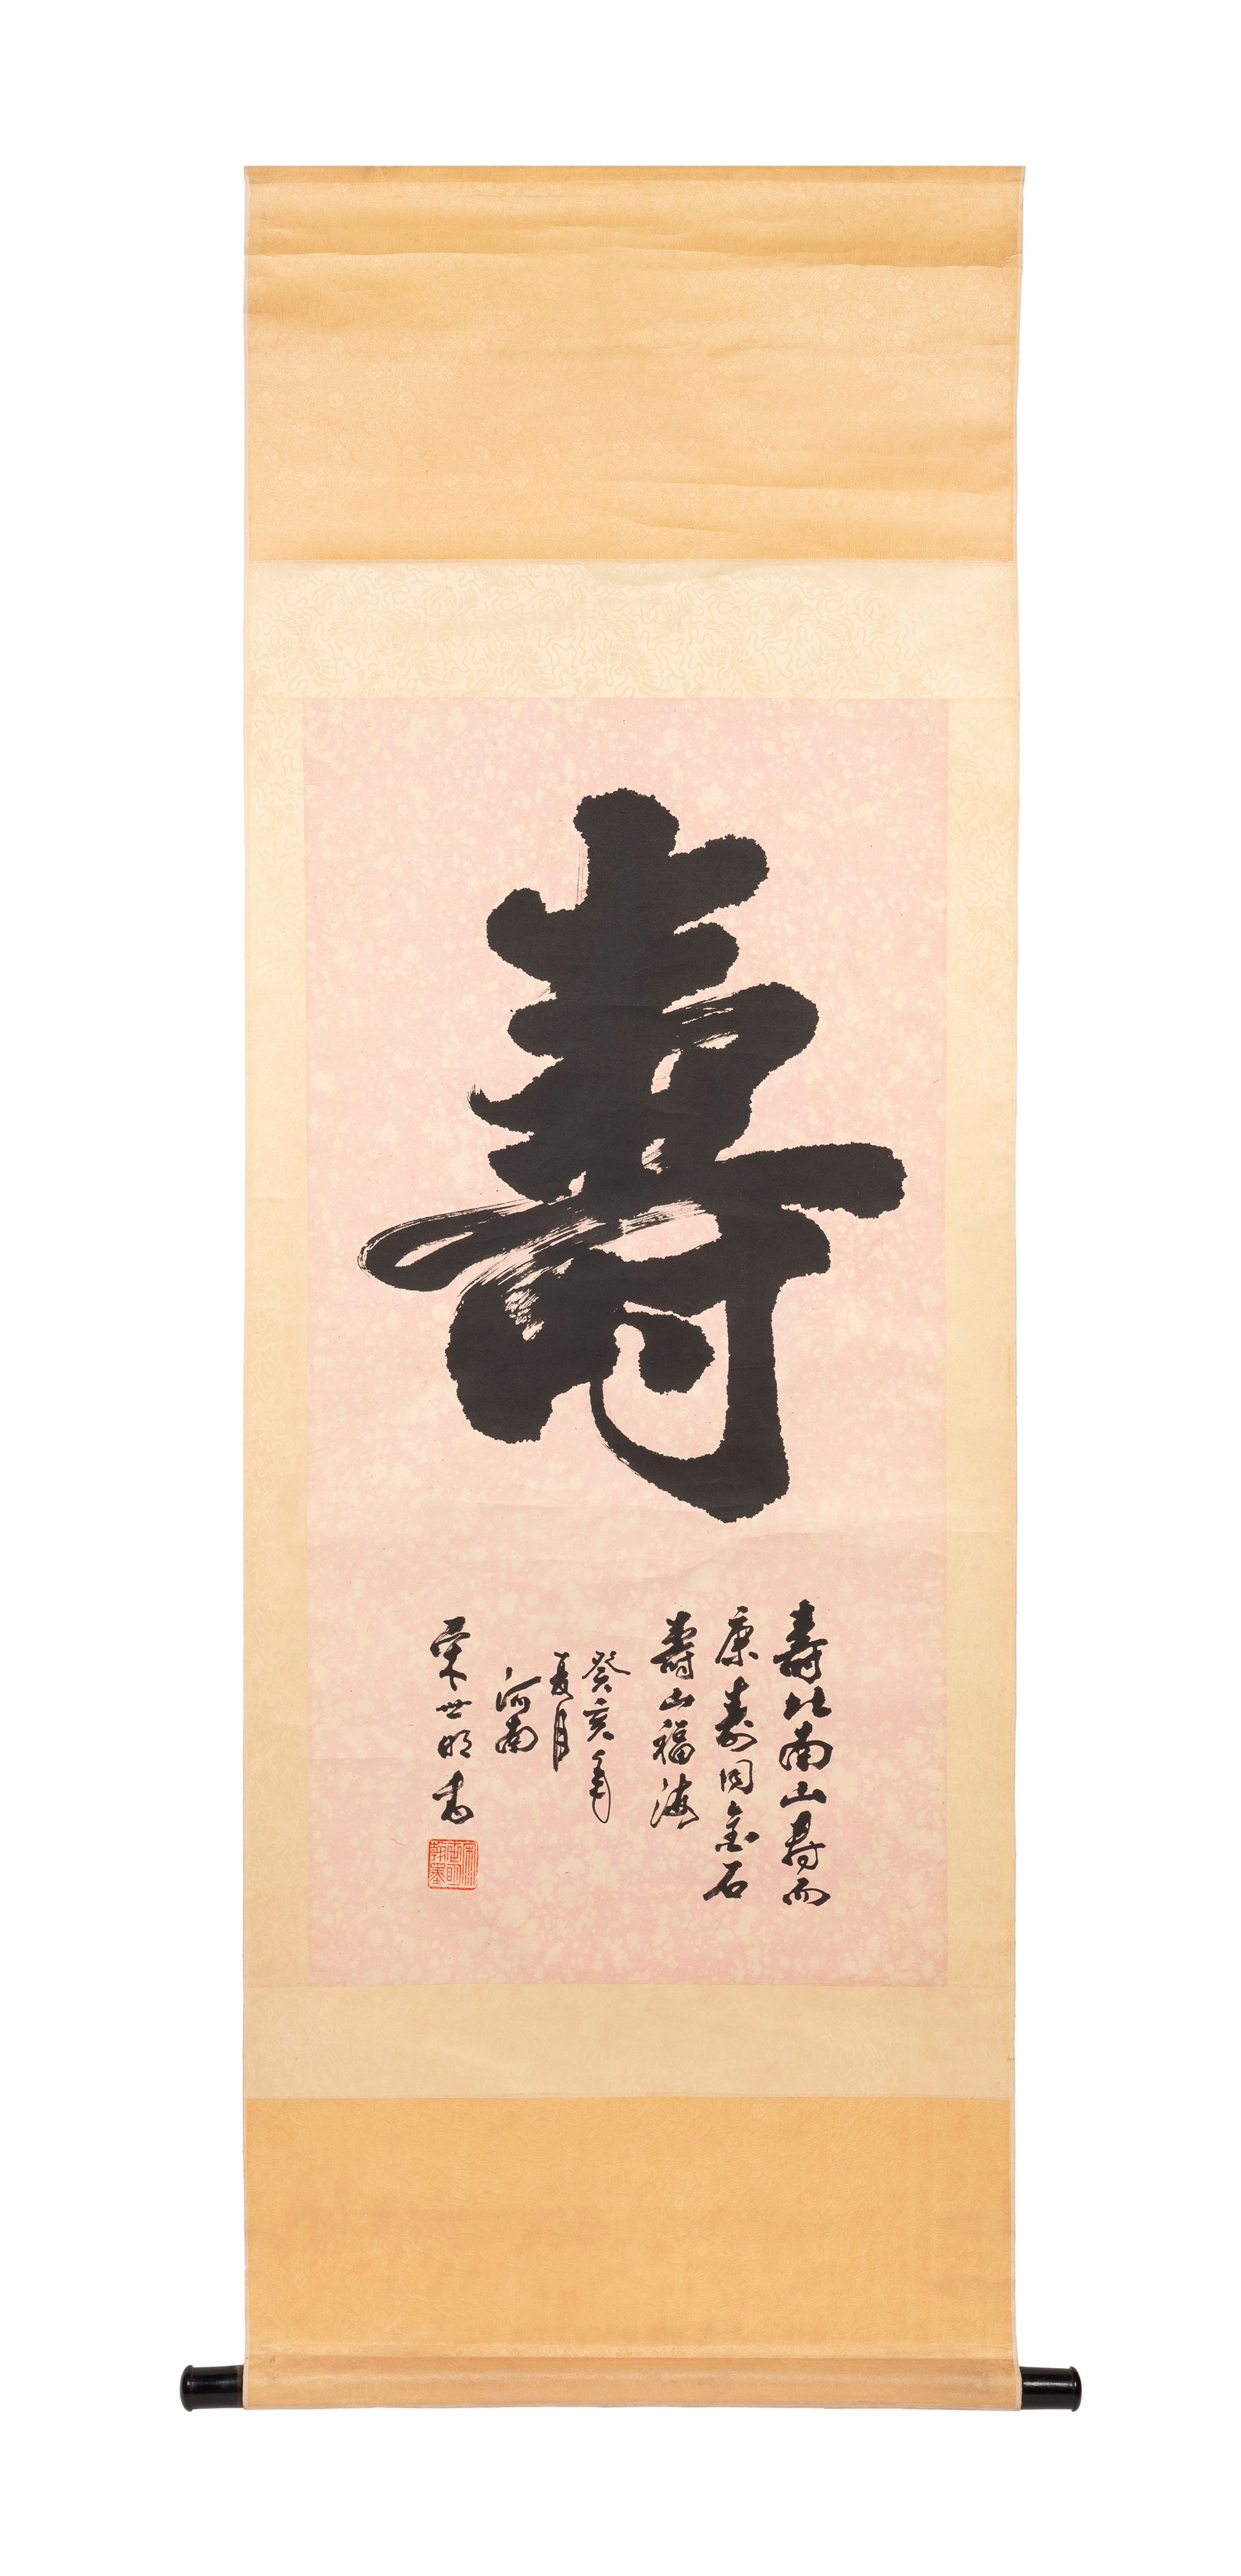 壽
壽比南山壽而
康壽同金石
壽山福海
癸亥年
夏月
河南
世明書